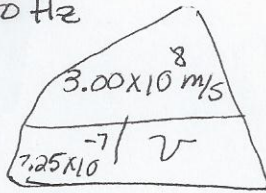 0 Hz
3.00x10⁸ m/s
7.25x10⁻⁷ | ν